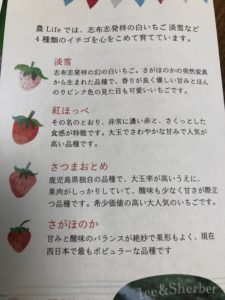 農Lifeでは、志布志発祥の白いちご 淡雪など
4種類のイチゴを心をこめて育てています。
淡雪
志布志発祥の幻の白いちご。さがほのかの突然変異
から生まれた品種で、香りが良く優しい甘みとほん
のりピンク色の見た目も可愛いいちごです。
紅ほっぺ
その名のとおり、非常に濃い赤と、さくっとした
食感が特徴です。大玉でさわやかな甘みで人気が
高い品種です。
さつまおとめ
鹿児島県独自の品種で、大玉率が高いうえに、
果肉がしっかりしていて、酸味も少なく甘さが際立
つ品種です。希少価値の高い大人気のいちごです。
さがほのか
甘みと酸味のバランスが絶妙で果形もよく、現在
西日本で最もポピュラーな品種です
Ice&Sherbet